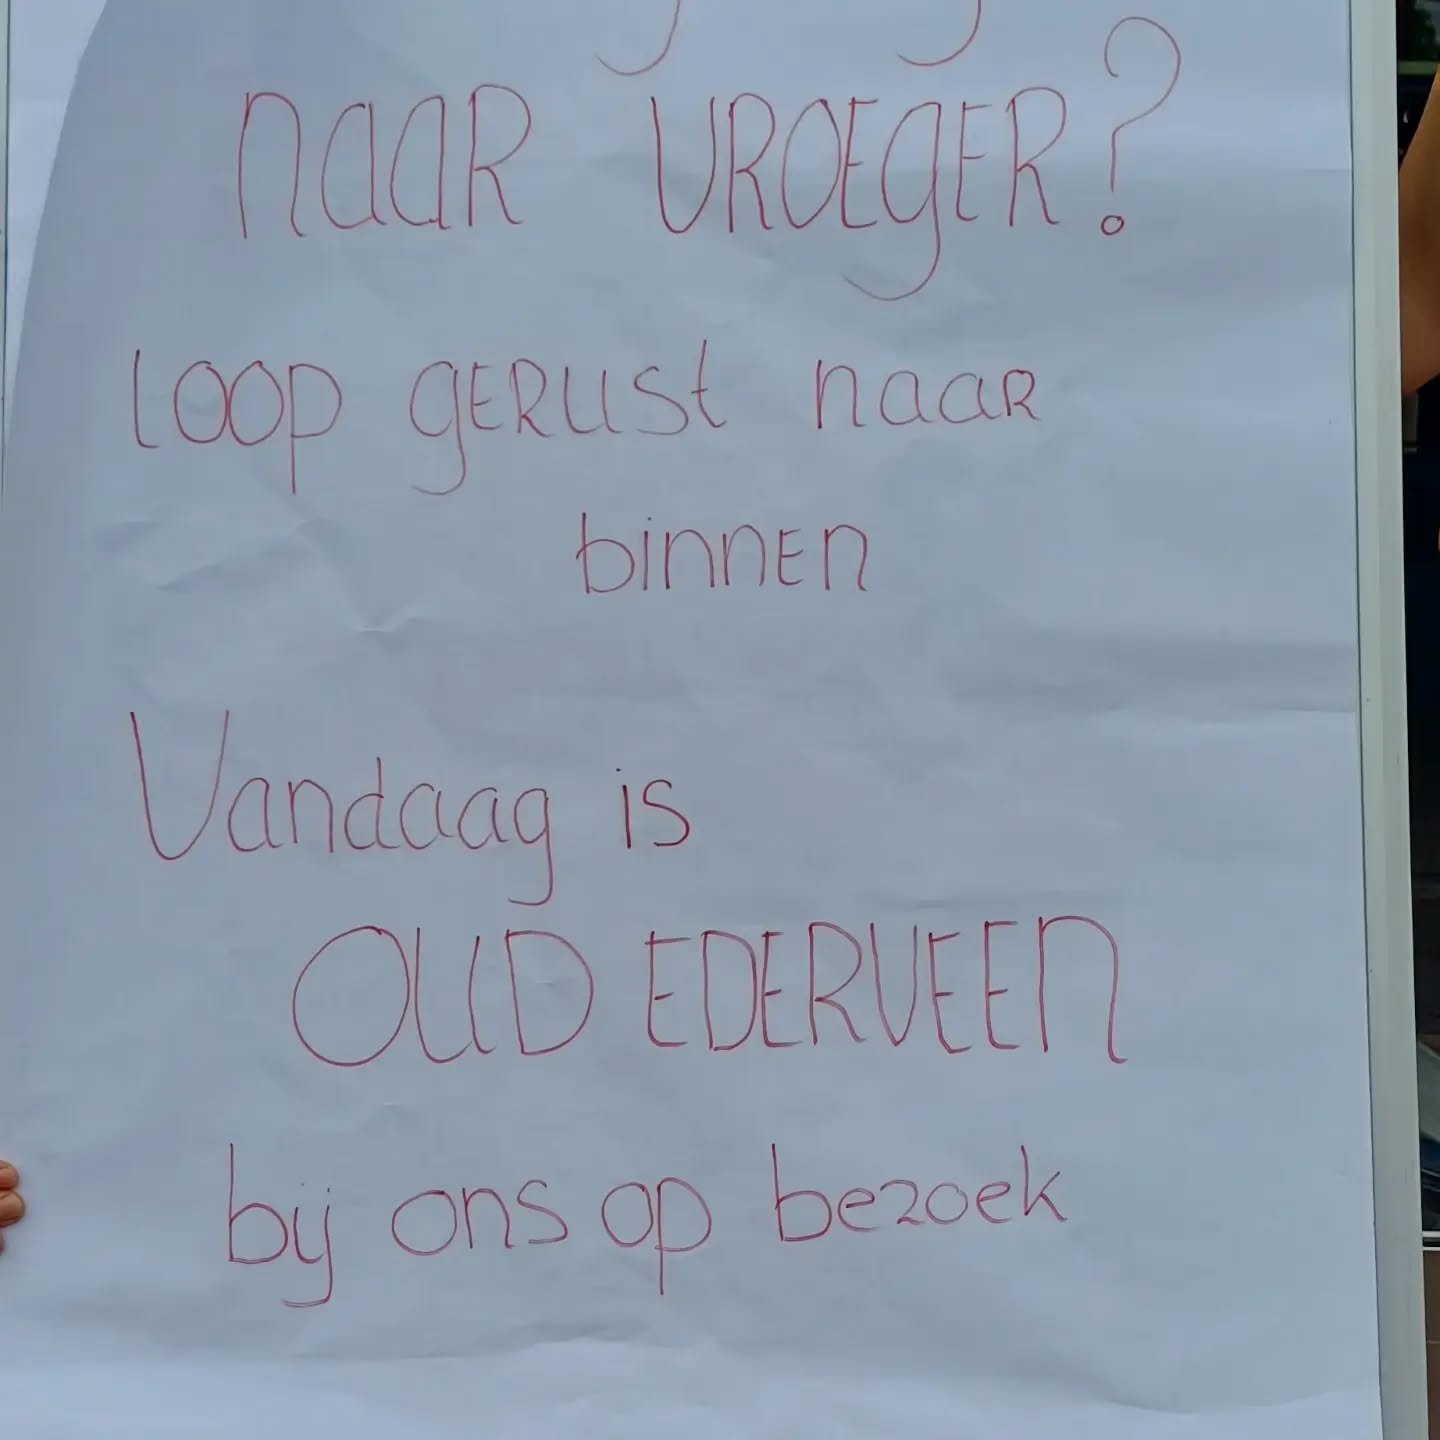 naaR VROEGER?
loop gERUSt naaR
binnEn
Vandaag is
OUD EDERVEEn
bij ons op bezoek